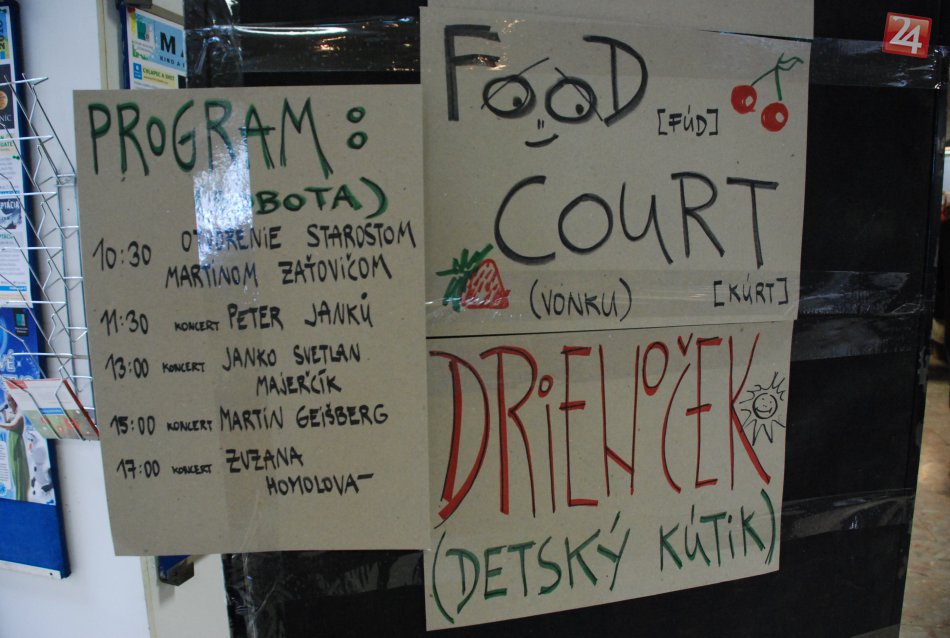 PROGRAM:
(SOBOTA)
10:30 OTVORENIE STAROSTOM
MARTINOM ZAŤOVIČOM
11:30 KONCERT PETER JANKŮ
13:00 KONCERT JANKO SVETLAN
MAJERČÍK
15:00 KONCERT MARTIN GEIŠBERG
17:00 KONCERT ZUZANA
HOMOLOVA
FOOD
[FÚD]
COURT
(VONKU)
[KÚRT]
DRIENOČEK
(DETSKÝ KÚTIK)
24